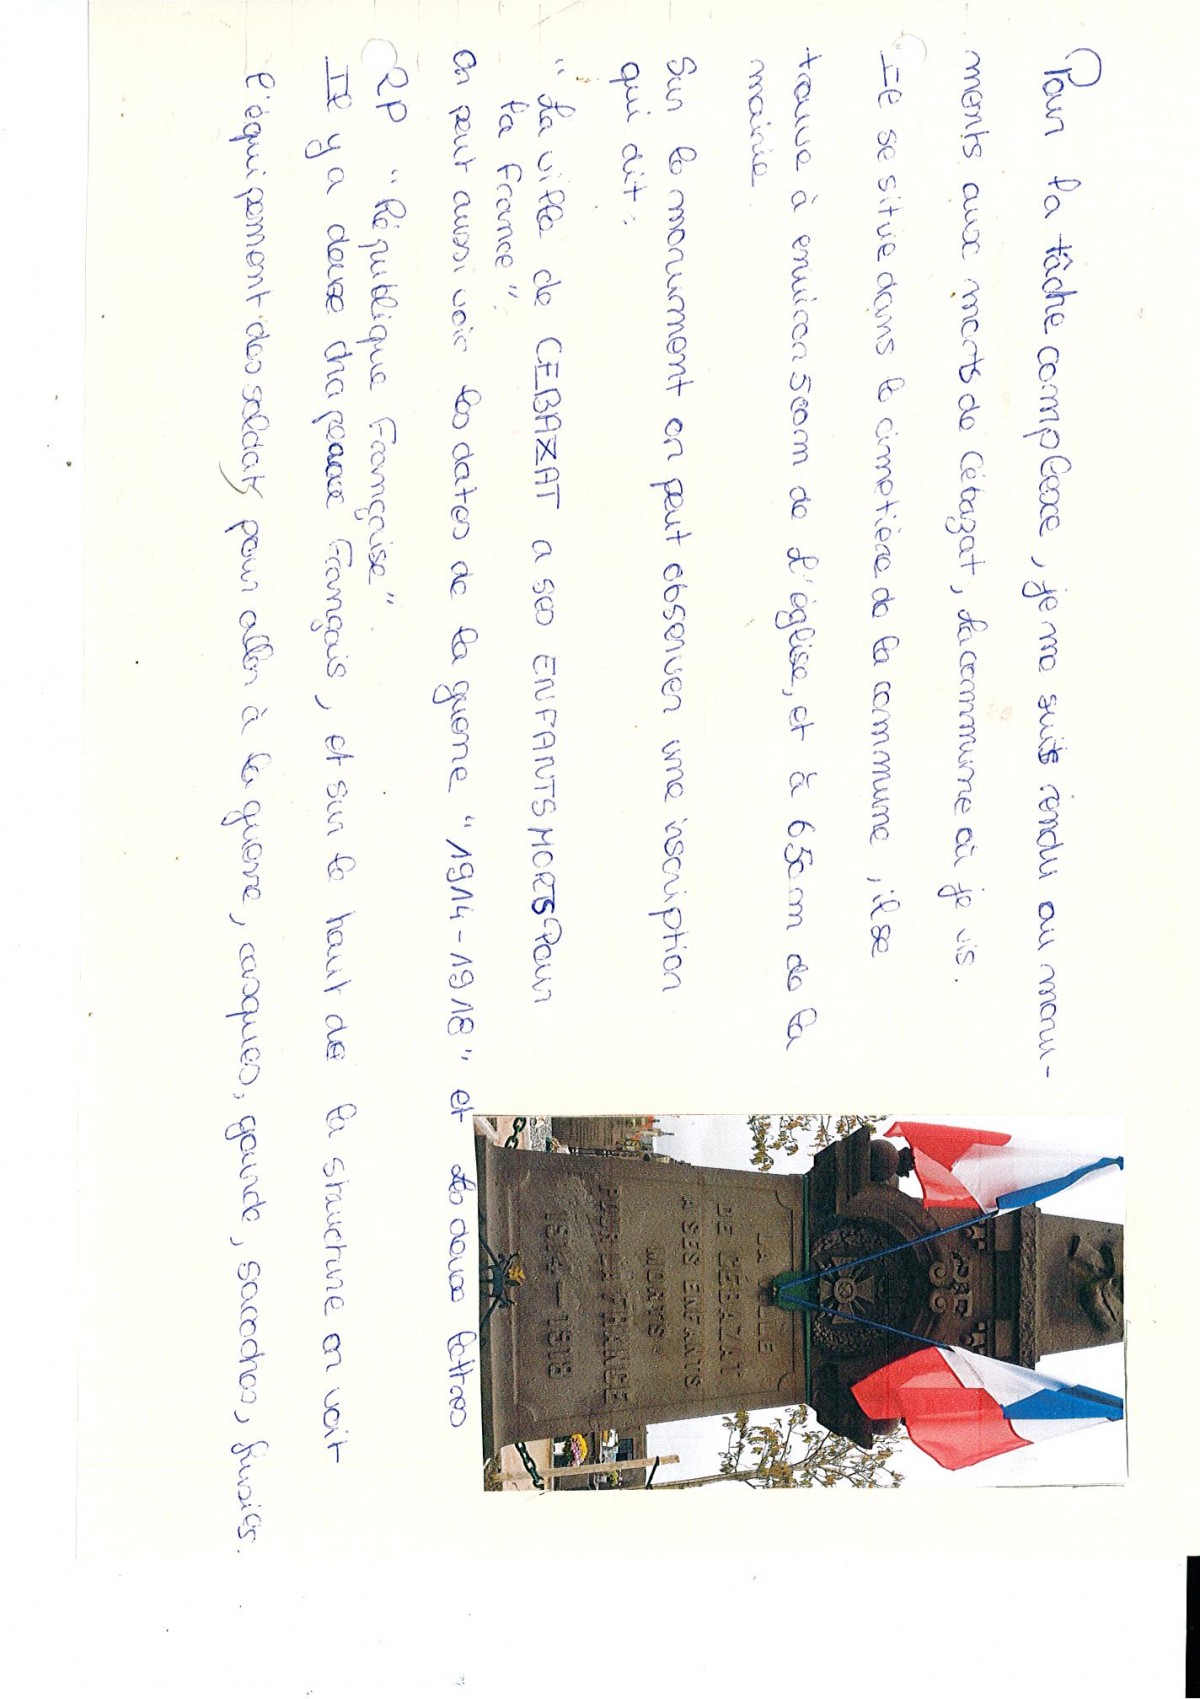 Pour la tâche complexe, je me suis rendu au monu-
ments aux morts de Cébazat, la commune où je vis.
Il se situe dans le cimetière de la commune, il se
trouve à environ 500m de l'église, et à 650m de la
mairie.
Sur le monument on peut observer une inscription
qui dit :
"La ville de CEBAZAT a ses ENFANTS MORTS Pour
la France".
on peut aussi voir les dates de la guerre "1914-1918" et les deux lettres
RP "République Française".
Il y a deux drapeaux Français, et sur le haut de la structure on voit
l'équipement des soldats pour aller à la guerre, casques, gourde, sacoches, fusils.
LA VILLE
DE CÉBAZAT
A SES ENFANTS
MORTS
POUR LA FRANCE
1914-1918